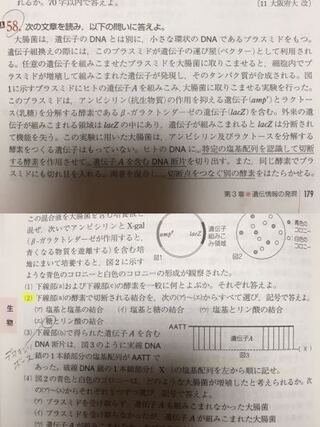 れるか。70字以内で答えよ。
〔11 大阪府大 改〕
58. 次の文章を読み，以下の問いに答えよ。
大腸菌は，遺伝子のDNAとは別に，小さな環状のDNAであるプラスミドをもつ。
遺伝子組換えの際には，このプラスミドが遺伝子の運び屋(ベクター)として利用され
る。任意の遺伝子を組みこませたプラスミドを大腸菌に取りこませると，細胞内でプラ
スミドが増殖して組みこまれた遺伝子が発現し，そのタンパク質が合成される。図
1に示すプラスミドにヒトの遺伝子Aを組みこみ，大腸菌に取りこませる実験を行った。
このプラスミドは，アンピシリン(抗生物質)の作用を抑える遺伝子(ampʳ)とラクトー
ス(乳糖)を分解する酵素であるβ-ガラクトシダーゼの遺伝子(lacZ)を含む。外来の遺
伝子が組みこまれる領域はlacZの中にあり，遺伝子が組みこまれるとlacZは分断され
て機能を失う。この実験に用いた大腸菌は，アンピシリン及びラクトースを分解する
酵素をつくる遺伝子はもっていない。ヒトのDNAに，特定の塩基配列を認識して切断
する酵素を作用させて，遺伝子Aを含むDNA断片を切り出す。また，同じ酵素でプラ
スミドにも切れ目を入れる。両者を混合し，切断点をつなぐ別の酵素をはたらかせる。
第3章 遺伝情報の発現 179
この混合液を大腸菌を含む培養液に
混ぜ，次いでアンピシリンとX-gal
(β-ガラクトシダーゼが作用すると，
青くなる物質を遊離する)を含む培
地にまいて培養すると，図2に示す
ような青色のコロニーと白色のコロニーの形成が観察された。
ampʳ lacZ
遺伝子
組みこ
み領域
図1
図2
青色の
コロニー
白色の
コロニー
(1) 下線部(a)および下線部(c)の酵素を一般に何とよぶか。それぞれ答えよ。
(2) 下線部(a)の酵素で切断される結合を，次の(ア)〜(エ)からすべて選び，記号で答えよ。
(ア) 糖と塩基の結合 (イ) 塩基と糖の結合 (ウ) 塩基とリン酸の結合
(エ) 糖とリン酸の結合
生物
(3) 下線部(b)で得られた遺伝子Aを含む
DNA断片は，図3のように実線DNA
鎖の1本鎖部分の塩基配列がAATTで
あった。破線DNA鎖の1本鎖部分( X )の塩基配列を左から順に記せ。
AATT
遺伝子A
( X )
図3
(4) 図2の青色と白色のコロニーは，どのような大腸菌が増殖したと考えられるか。次
の(ア)〜(エ)からそれぞれ1つずつ選び，記号で答えよ。
(ア) プラスミドを受け取らず，遺伝子Aも組みこまれなかった大腸菌